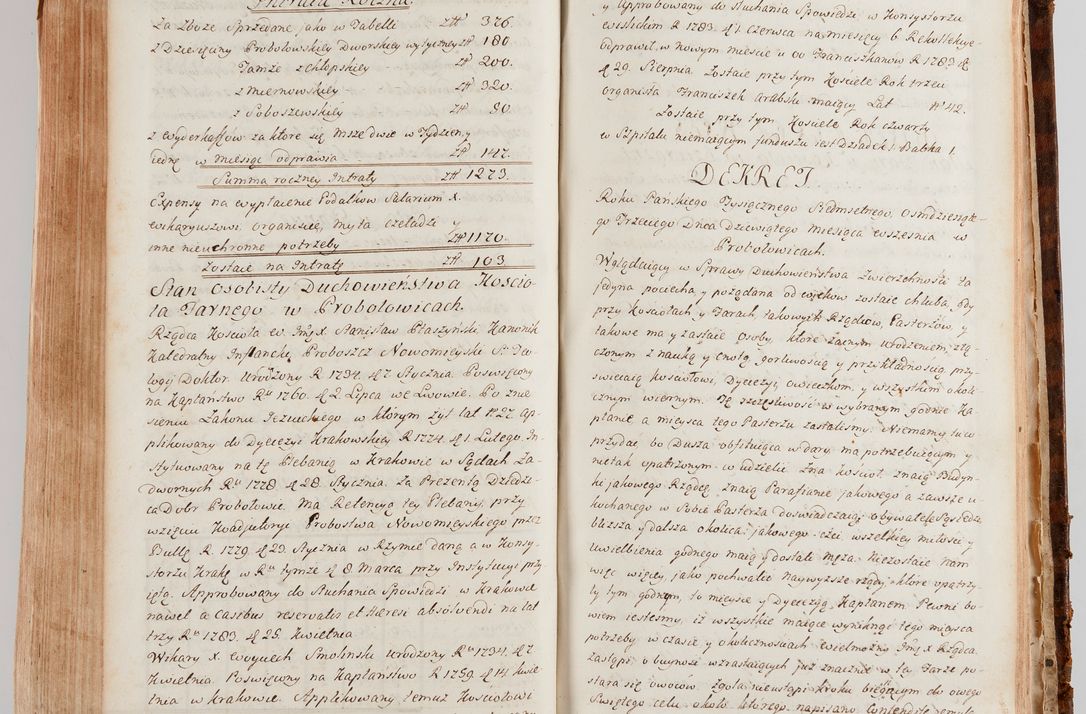 Intrata Roczna.
Za Zboże Sprzedane jako w Tabelli Złł 376.
z Dziesięciny Probołowskiey Dworskiey wytyczney Złł 180
Tamże z chłopskiey Złł 200.
z Miernowskiey Złł 320.
z Soboszewskiey Złł 50.
z Wyderkaffów za które się Msze dwie w Tydzien, y
iedną w Miesiąc odprawia Złł 147.
Summa roczney Intraty Złł 1273.
Expensy na wypłacenie Podatków Salarium X.
Wikaryuszowi, Organiście, myta czeladzi y
inne nieuchronne potrzeby Złł 1170.
Zostaie na Intraty Złł 103
Stan osobisty Duchowieństwa Kościo-
ła Farnego w Probołowicach.
Rządca Kościoła W. Jmć X. Stanisław Ptaszyński Kanonik
Katedralny Inflancki, Proboszcz Nowomieyski S. Teo-
logij Doktor. Urodzony R. 1734. d. 7. Stycznia. Poswięcony
na Kapłaństwo Ru 1760. d. 2. Lipca we Lwowie. Po znie
sieniu Zakonu Jezuickiego w którym żył lat 27. Ap-
plikowany do Dyecezyi Krakowskiey R. 1774. d. 1. Lutego. In-
stytuowany na tę Plebanią w Krakowie w Sądach Za-
dwornych Ru 1778 d. 28. Stycznia. Za Prezentą Dziedzi-
ca Dobr Probołowic. Ma Retencyą tey Plebanij, przy
wzięciu Koadjutoryi Probostwa Nowomieyskiego przez
Bullę R. 1779. d. 23. Stycznia w Rzymie daną a w Konsy-
storzu Krakº w Ru tymże d. 8. Marca przy Instytucyi przy
iętą. Approbowany do słuchania Spowiedzi w Krakowie
nawet a Casibus reservatis et Heresi absolvendi na lat
trzy Ru 1783. d. 25. Kwietnia
Wikary X. Woyciech Smolinski Urodzony Ru 1734. d. 7.
Kwietnia. Poswięcony na Kapłaństwo R. 1759. d. 14. Kwie
tnia w Krakowie. Applikowany temuż Kościołowi
y Approbowany do słuchania Spowiedzi, w Konsystorzu
Wislickim R. 1783. d. 1. Czerwca na miesięcy 6. Rekollekcye
odprawił w nowym mieście u OO Franciszkanów R. 1783 d.
d. 29. Sierpnia Zostaie przy tym Kościele Rok trzeci
Organista Franciszek Arabski maiący Lat N° 42.
Zostaie przy tym Kościele Rok czwarty
w Szpitalu niemaiącym funduszu iest Dziadek 1 Babka 1.
DEKRET.
Roku Pańskiego Tysiącznego Siedmsetnego, Osmdziesiąte-
go Trzeciego Dnia Dziewiątego Miesiąca Wszesnia w
Probołowicach.
Wglądaiącey w Sprawy Duchowieństwa Zwierzchności ta
jedyna pociecha y pożądana od wieków zostaie chluba, gdy
przy Kościołach y Farach takowych Rządców, Pasterzów, y
takowe ma y zastaie Osoby, które zacnym urodzeniem, złą-
czonym z nauką y cnotą, gorliwością y przykładnością przy
świecaią Kościołowi, Dyecezyi, owieczkom, y wszystkim okoli
cznym wiernym. Tę szczęśliwość w wybranym godnie Ka-
płanie a mieysca tego Pasterzu zastaliśmy. Niemamy tu co
przydać bo Dusza obfituiąca w dary ma potrzebuiącym y
nietak opatrzonym w udziele. Zna Kościoł, znaią Budyn-
ki jakowego Rządcę, znaią Parafianie jakowego a zawsze u-
kochanego w Sobie Pasterza doświadczaią, obywatele Sąsiedzi,
bliższa y dalsza okolica, jakowego czci wszelkiey miłości y
Uwielbienia godnego maią y dostali Męża. Niezostaie nam
więc więcey, jako pochwalić naywyższe rządy, które opatrzy-
ły tym godnym, to mieysce y Dyecezyą, Kapłanem. Pewni bo-
wiem iesteśmy, iż wszystkie maiące wyniknąć tego mieysca
potrzeby w czasie y okolicznościach Wielmożny Jmć X. Rządca
zastąpi, o buyność wzrastaiących już znacznie w tey Farze po-
stara się owoców. Zgoła nieustąpi kroku biegącym do owego
Swiętego celu, około którego napisano Contendite